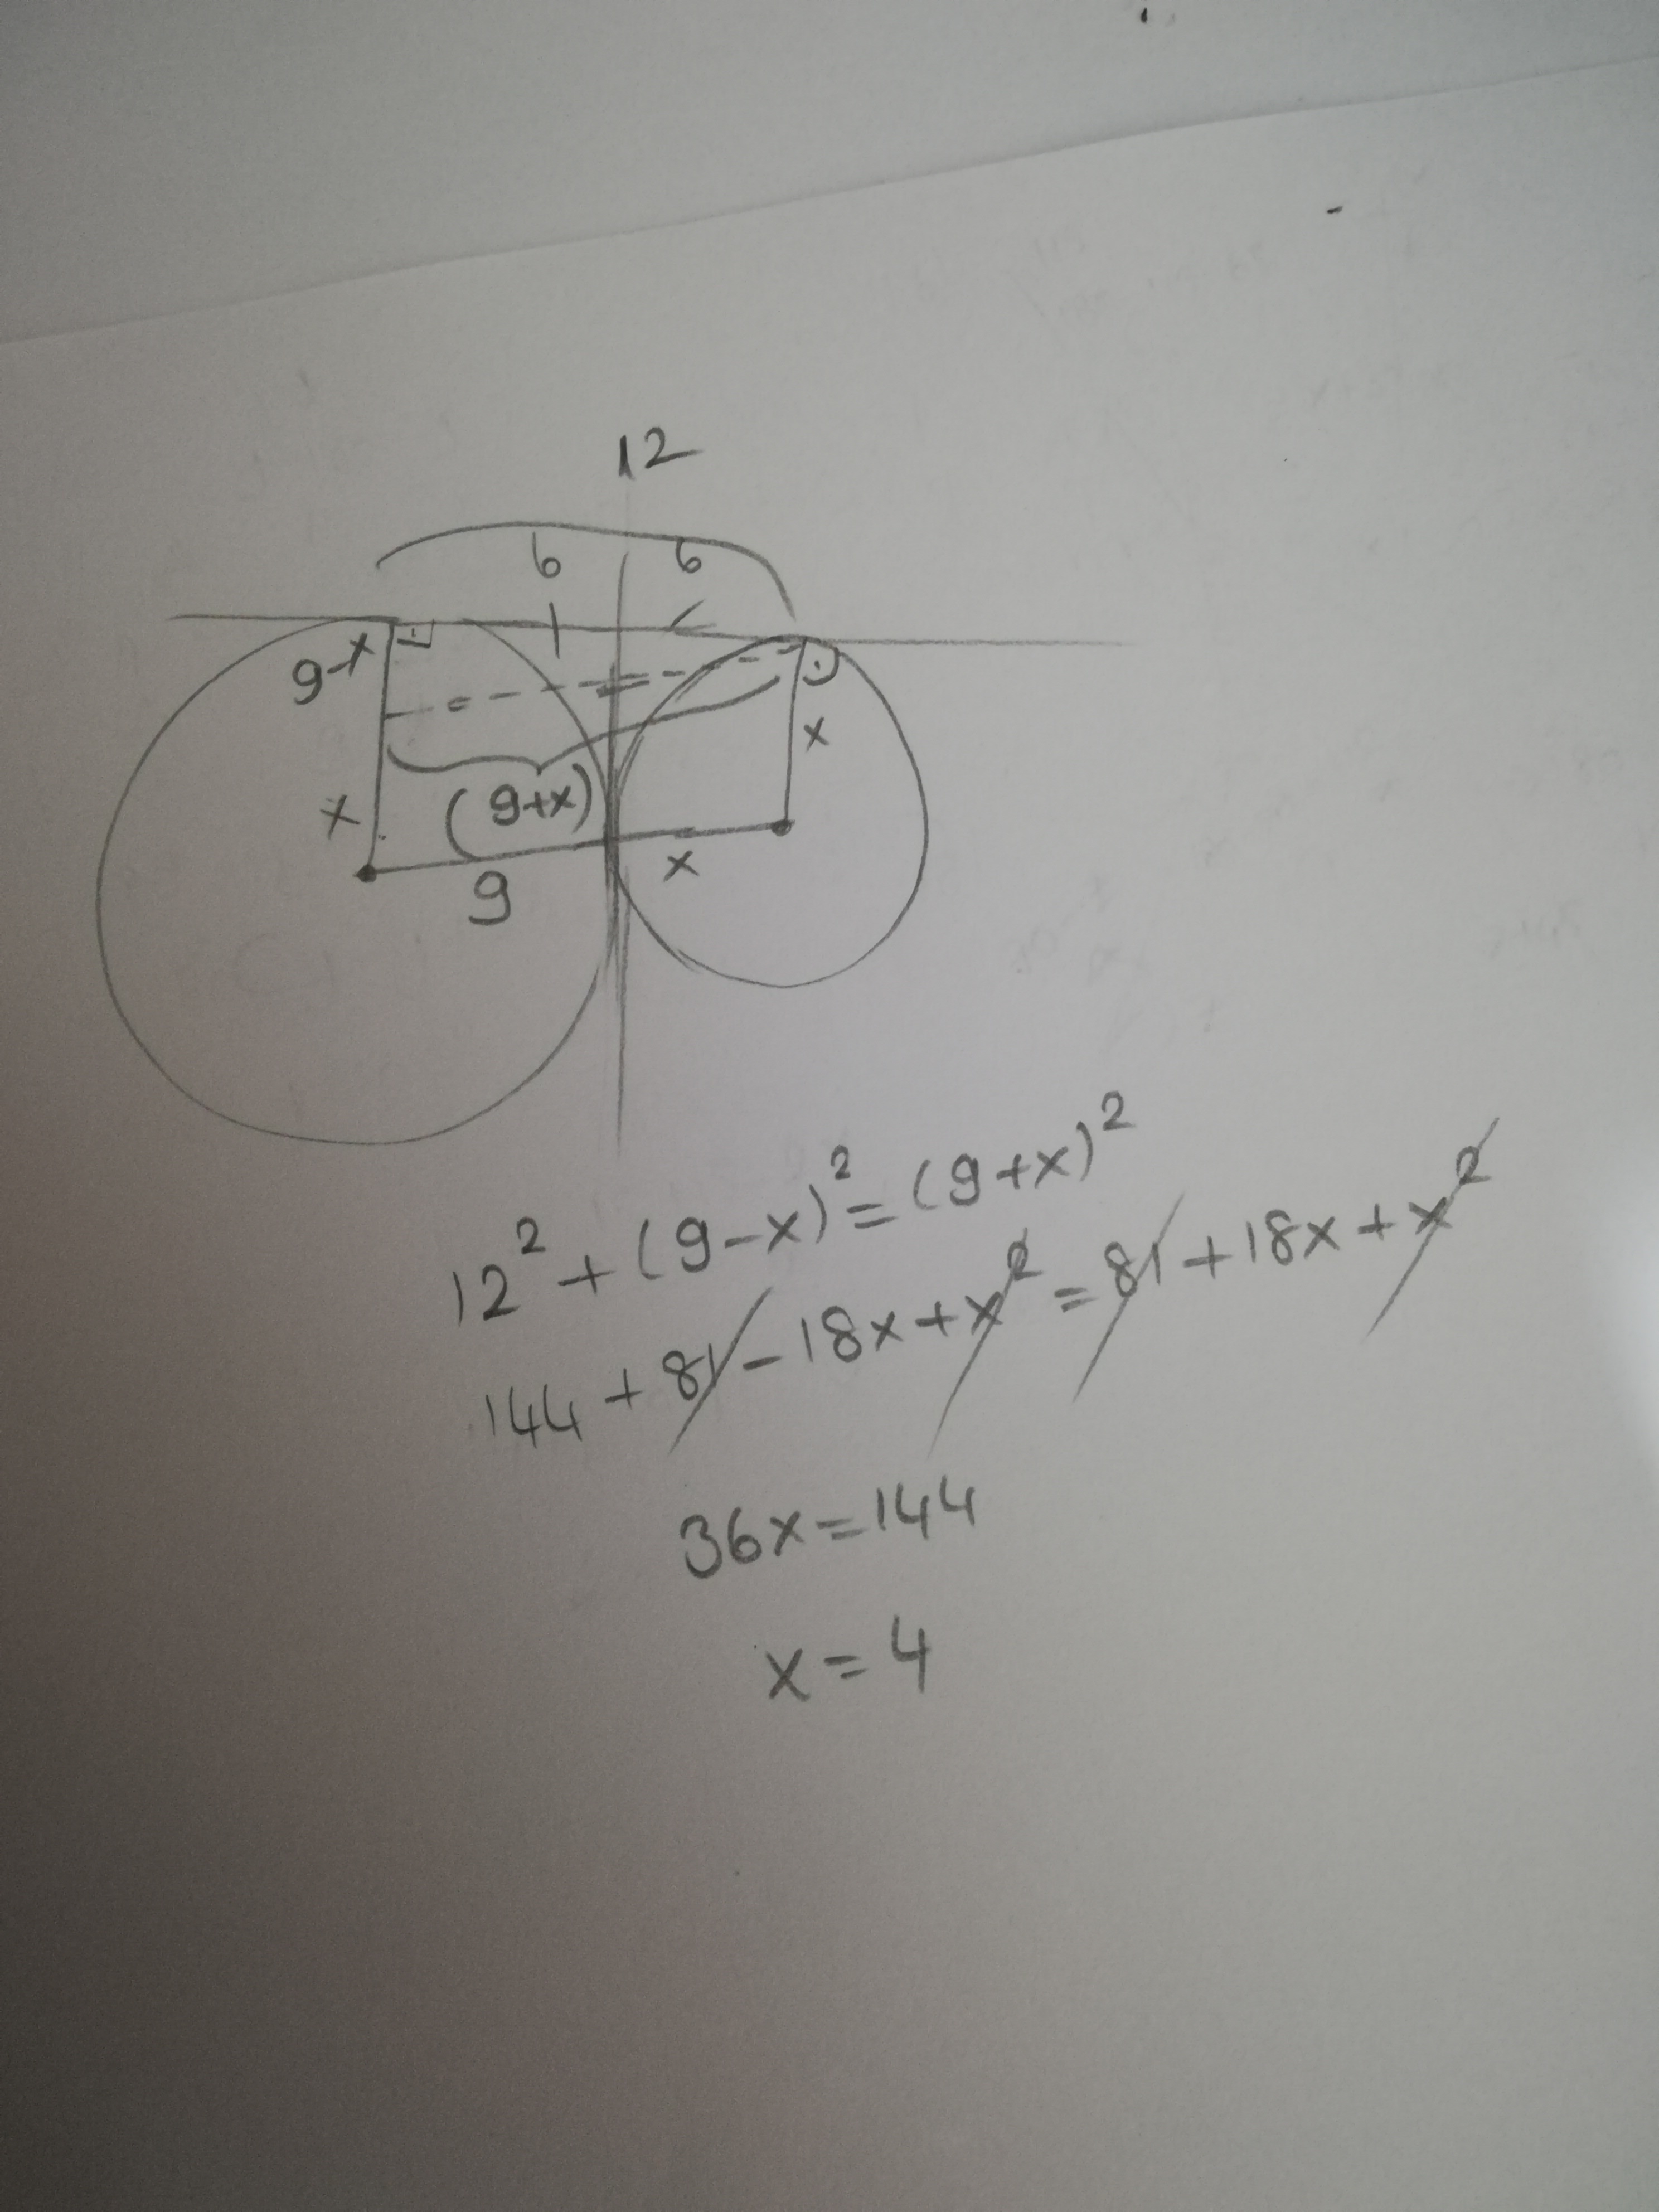 12
6 6
9-x
x
(9+x)
x
x
9
12² + (9-x)² = (9+x)²
144 + 81 - 18x + x² = 81 + 18x + x²
36x = 144
x = 4